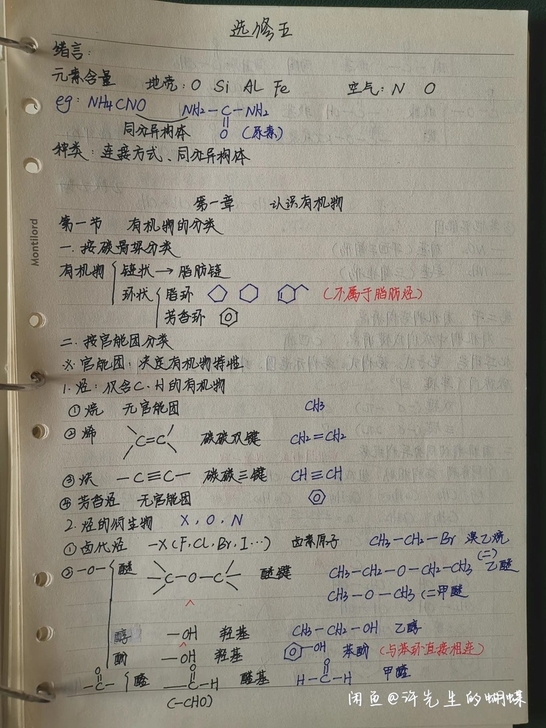 选修五
绪言:
元素含量 地壳:O Si AL Fe 空气:N O
eg:NH4CNO NH2-C-NH2
同分异构体 O (尿素)
种类:连接方式、同分异构体
第一章 认识有机物
第一节 有机物的分类
一.按碳骨架分类
有机物 链状→脂肪链
环状 脂环 (不属于脂肪烃)
芳香环
二.按官能团分类
※官能团:决定有机物特性
1.烃:仅含C.H的有机物
①烷 无官能团 CH3
②烯 C=C 碳碳双键 CH2=CH2
③炔 -C≡C- 碳碳三键 CH≡CH
④芳香烃 无官能团
2.烃的衍生物 X,O,N
①卤代烃 -X(F,Cl,Br,I…) 卤素原子 CH3-CH2-Br 溴乙烷
② -O- 醚 C-O-C 醚键 CH3-CH2-O-CH2-CH3 (二)乙醚
CH3-O-CH3 (二)甲醚
醇 -OH 羟基 CH3-CH2-OH 乙醇
酚 -OH 羟基 -OH 苯酚 (与苯环直接相连)
O O O
-C- 醛 -C-H 醛基 H-C-H 甲醛
(-CHO)
Montilord
闲鱼@许先生的蝴蝶